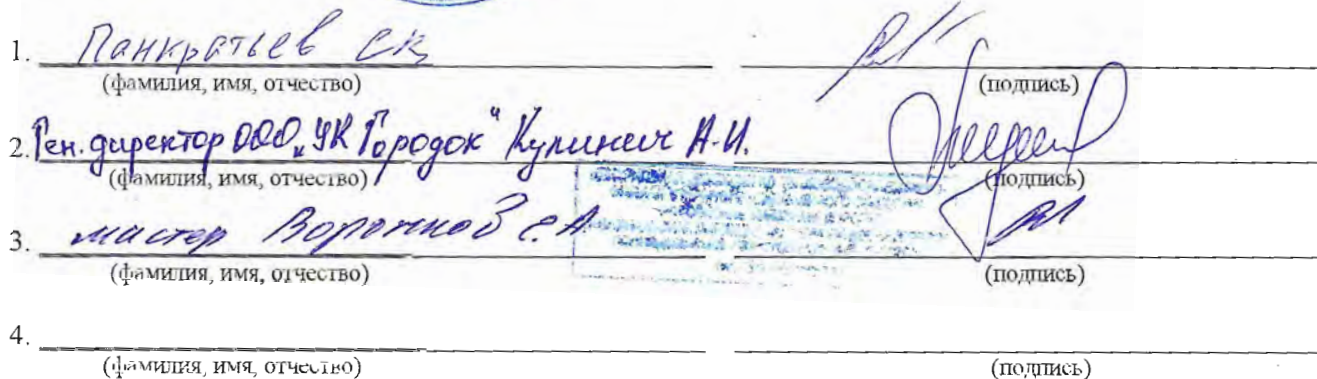 1. Панкратьев С.К.
(фамилия, имя, отчество) (подпись)
2. Ген. директор ООО „УК Городок" Кулинич А.И.
(фамилия, имя, отчество) (подпись)
3. мастер Воронков С.А.
(фамилия, имя, отчество) (подпись)
4.
(фамилия, имя, отчество) (подпись)